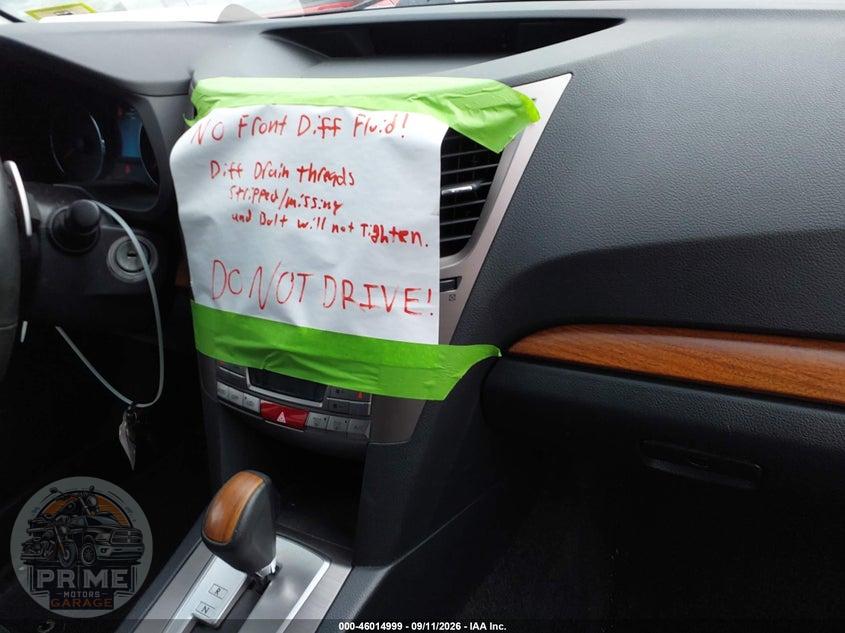 No Front Diff Fluid!
Diff Drain threads
stripped/missing
and Bolt will not Tighten.
DO NOT DRIVE!
R
N
PRIME
MOTORS
GARAGE
000-46014999 - 09/11/2026 - IAA Inc.